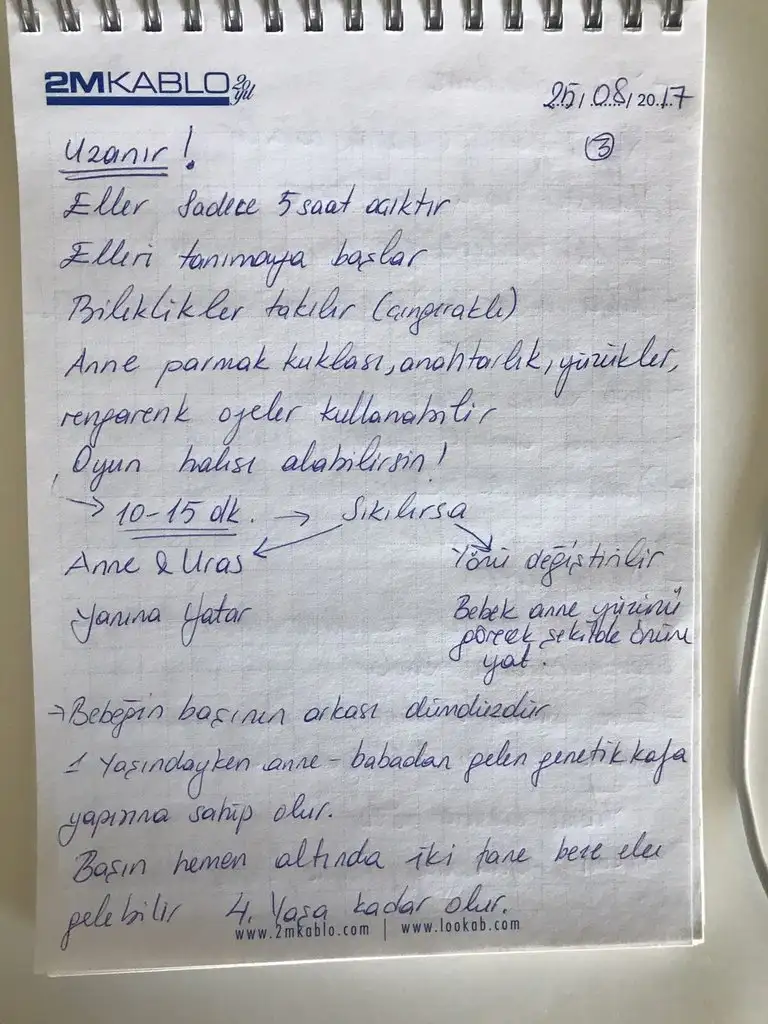 2MKABLO 20.yıl
25/08/2017
3
Uzanır!
Eller sadece 5 saat açıktır
Elleri tanımaya başlar
Bileklikler takılır (çıngıraklı)
Anne parmak kuklası, anahtarlık, yüzükler,
rengarenk ojeler kullanabilir
Oyun halısı alabilirsin!
→ 10-15 dk. → Sıkılırsa
Anne & Uras
Yanına Yatar
Yönü değiştirilir
Bebek anne yüzünü
görecek şekilde önüne
yat.
→ Bebeğin başının arkası dümdüzdür
1 Yaşındayken anne-babadan gelen genetik kafa
yapısına sahip olur.
Başın hemen altında iki tane beze ele
gelebilir 4. Yaşa kadar olur.
www.2mkablo.com | www.lookab.com